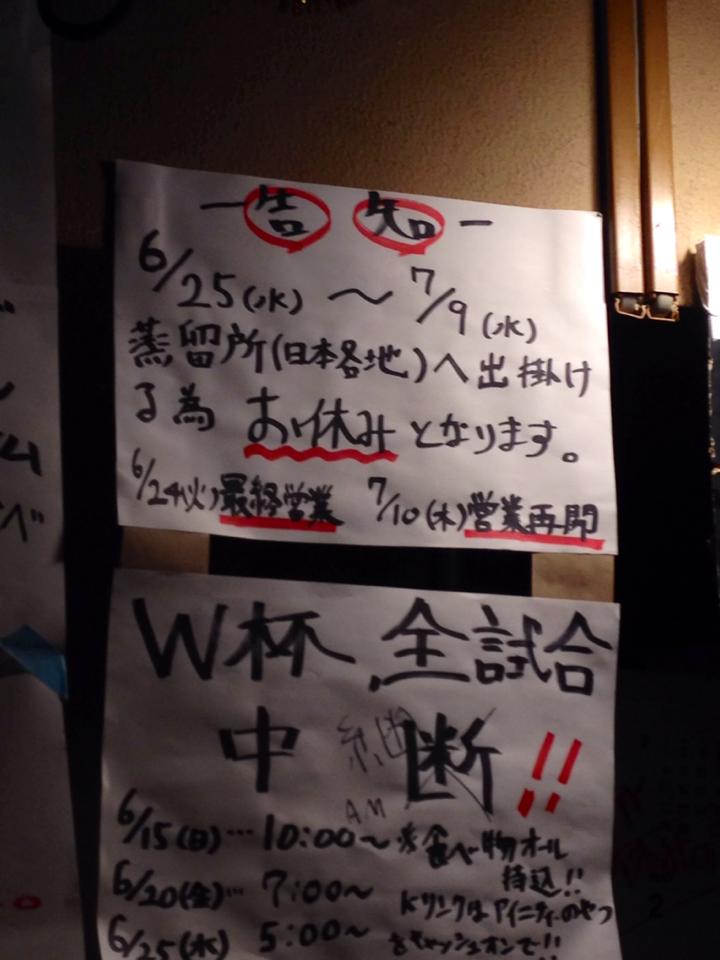 ー告知ー
6/25(水)〜7/9(水)
蒸留所(日本各地)へ出掛け
る為 お休みとなります。
6/24(火)最終営業 7/10(木)営業再開
W杯、全試合
中継断!!
AM
6/15(日)…10:00〜 ※食べ物オール
持込!!
6/20(金)…7:00〜 ドリンクは
6/25(水) 5:00〜 をキャッシュオンで!!